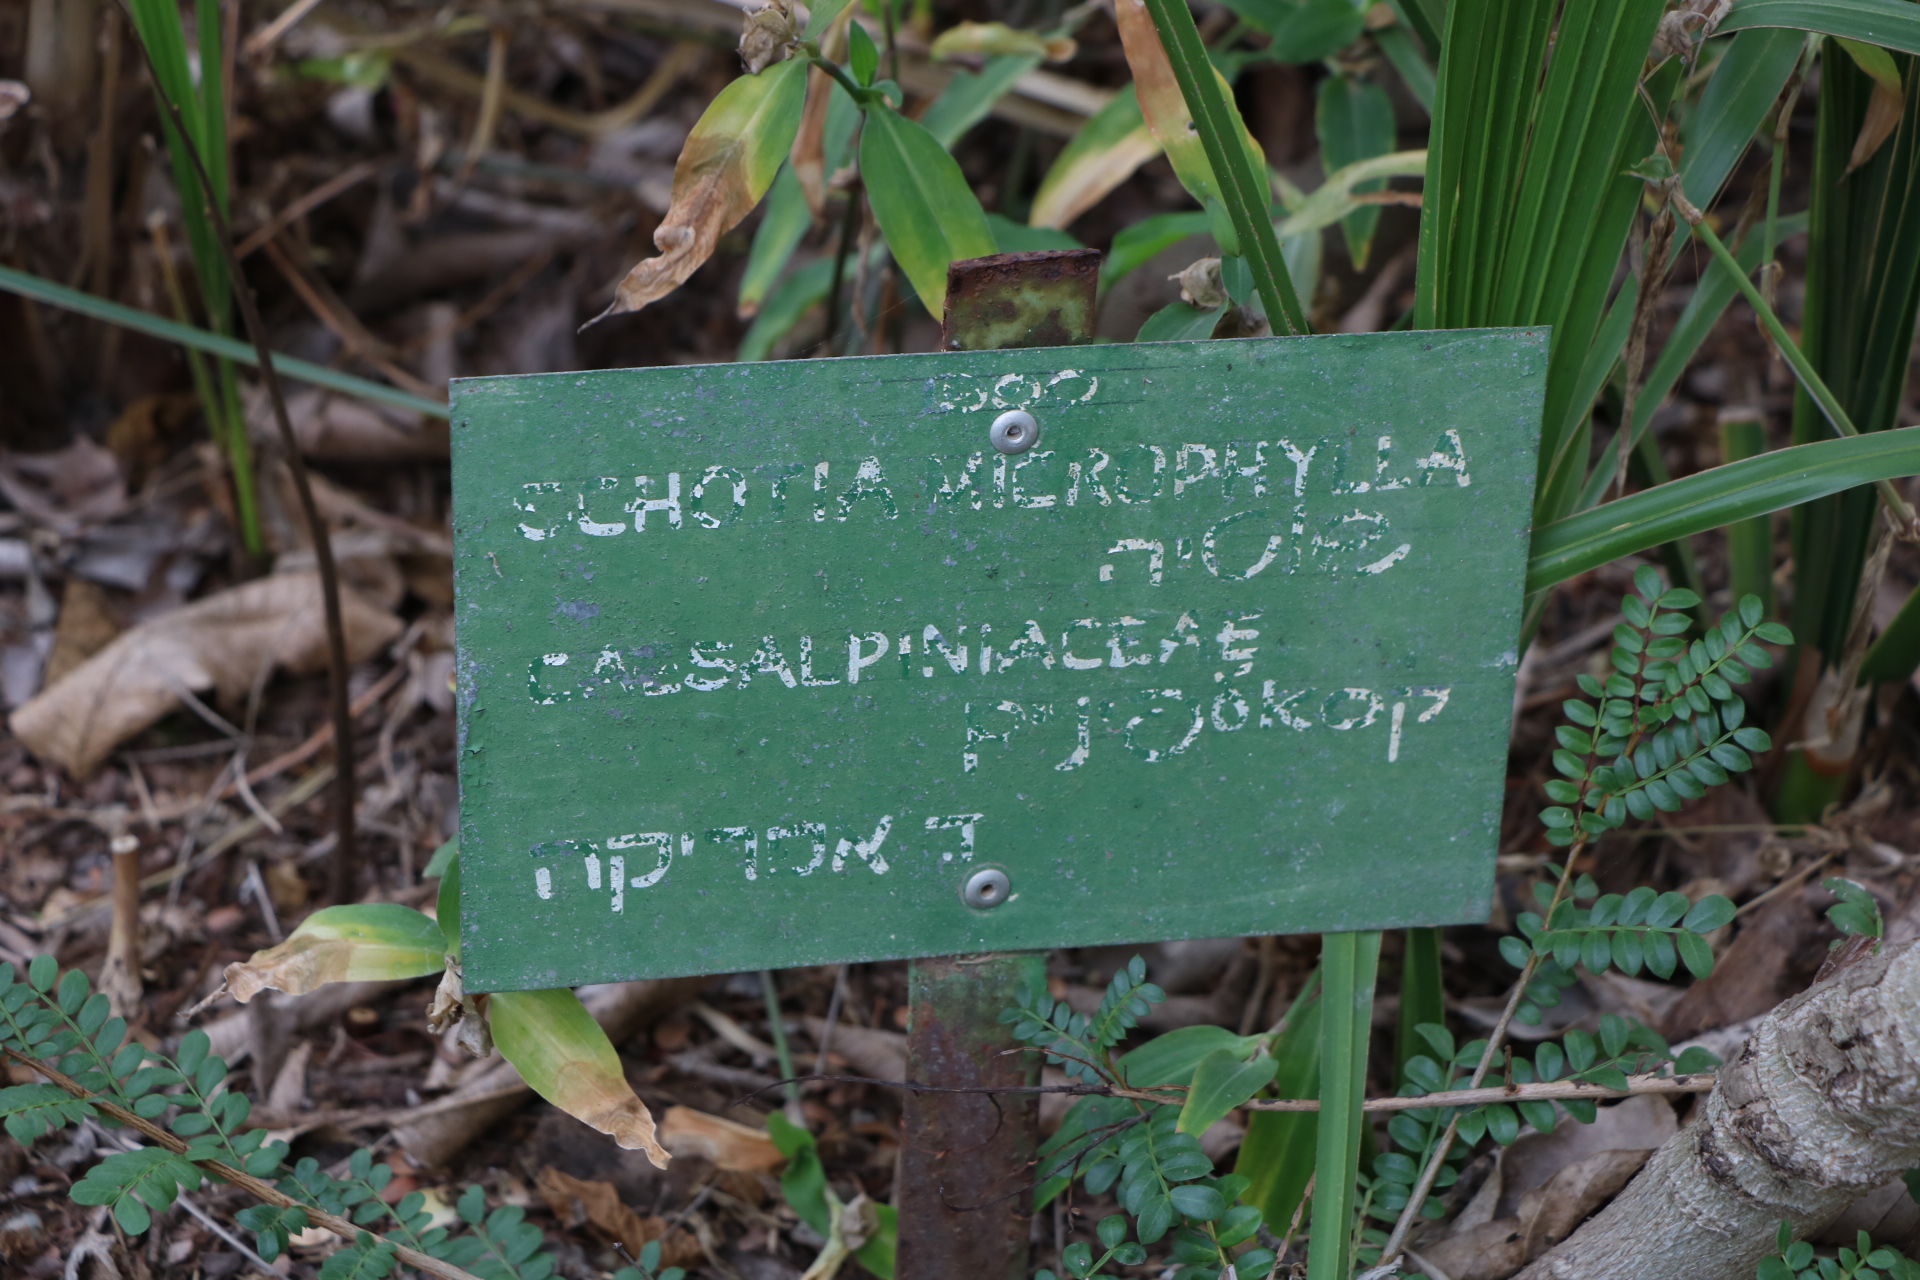 SCHOTIA MICROPHYLLA
שוטיה
CAESALPINIACEAE
קסאלפיניים
ד' אפריקה